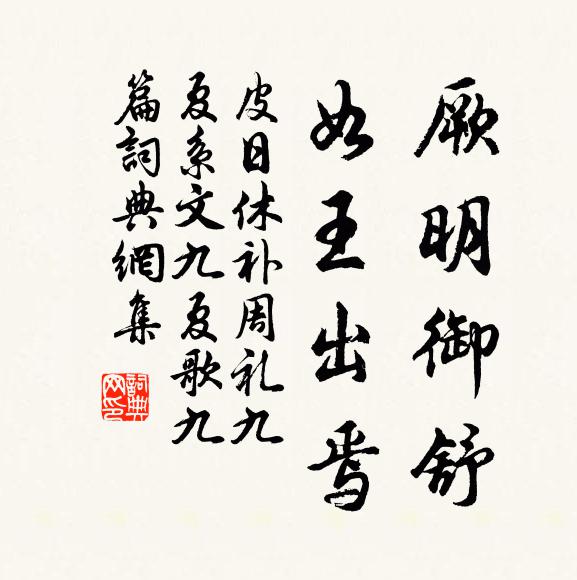 厥明御舒
如王出焉
皮日休补周礼九
夏系文九夏歌九
篇詞典網集
詞典
网印